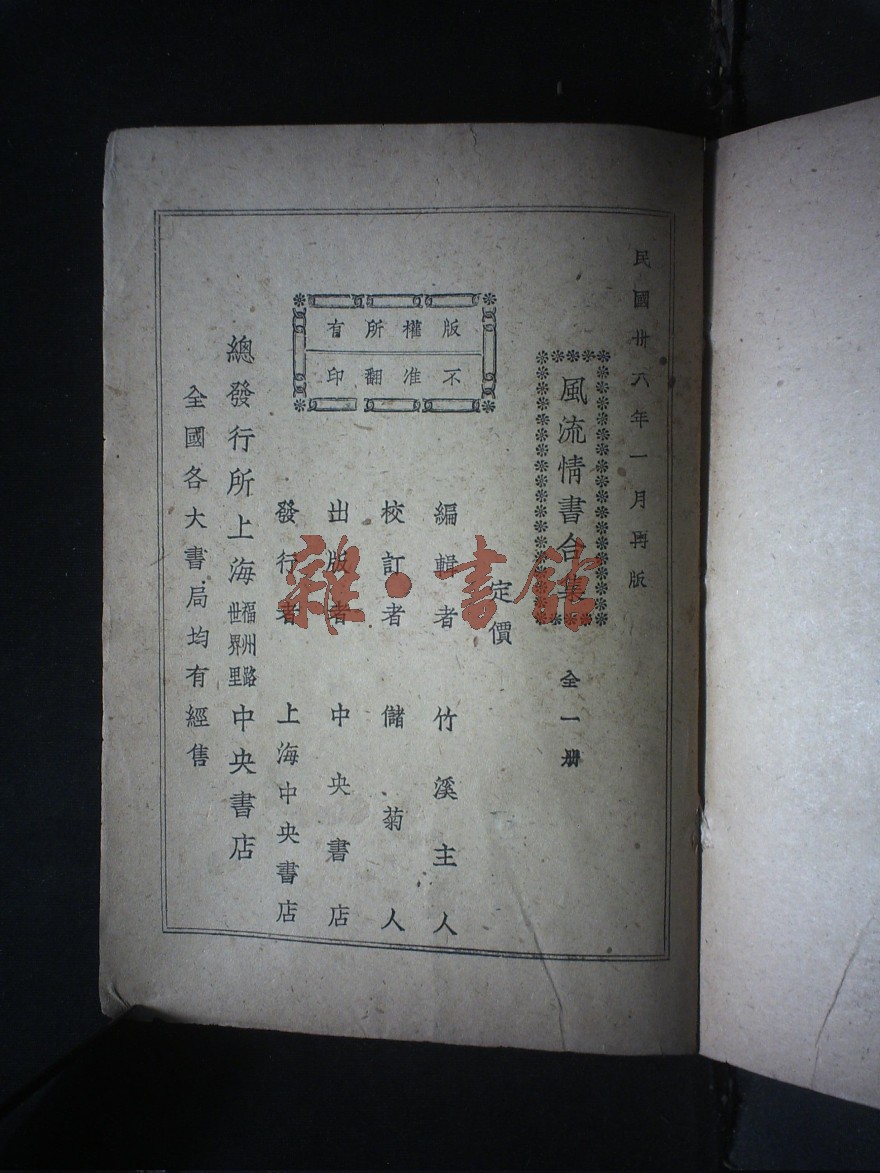 民國卅六年一月再版
風流情書合集 全一册
定價
版權所有
不准翻印
編輯者 竹溪主人
校訂者 儲菊人
出版者 中央書店
發行者 上海中央書店
總發行所上海福州路世界里中央書店
全國各大書局均有經售
雜·書館